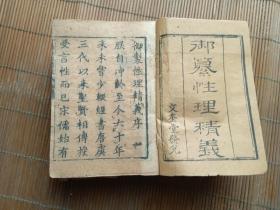 御纂性理精義
御製性理精義序
朕自沖齡至今六十年
來未嘗少輟經書唐虞
三代以來聖賢相傳授
受言性而已宋儒始有